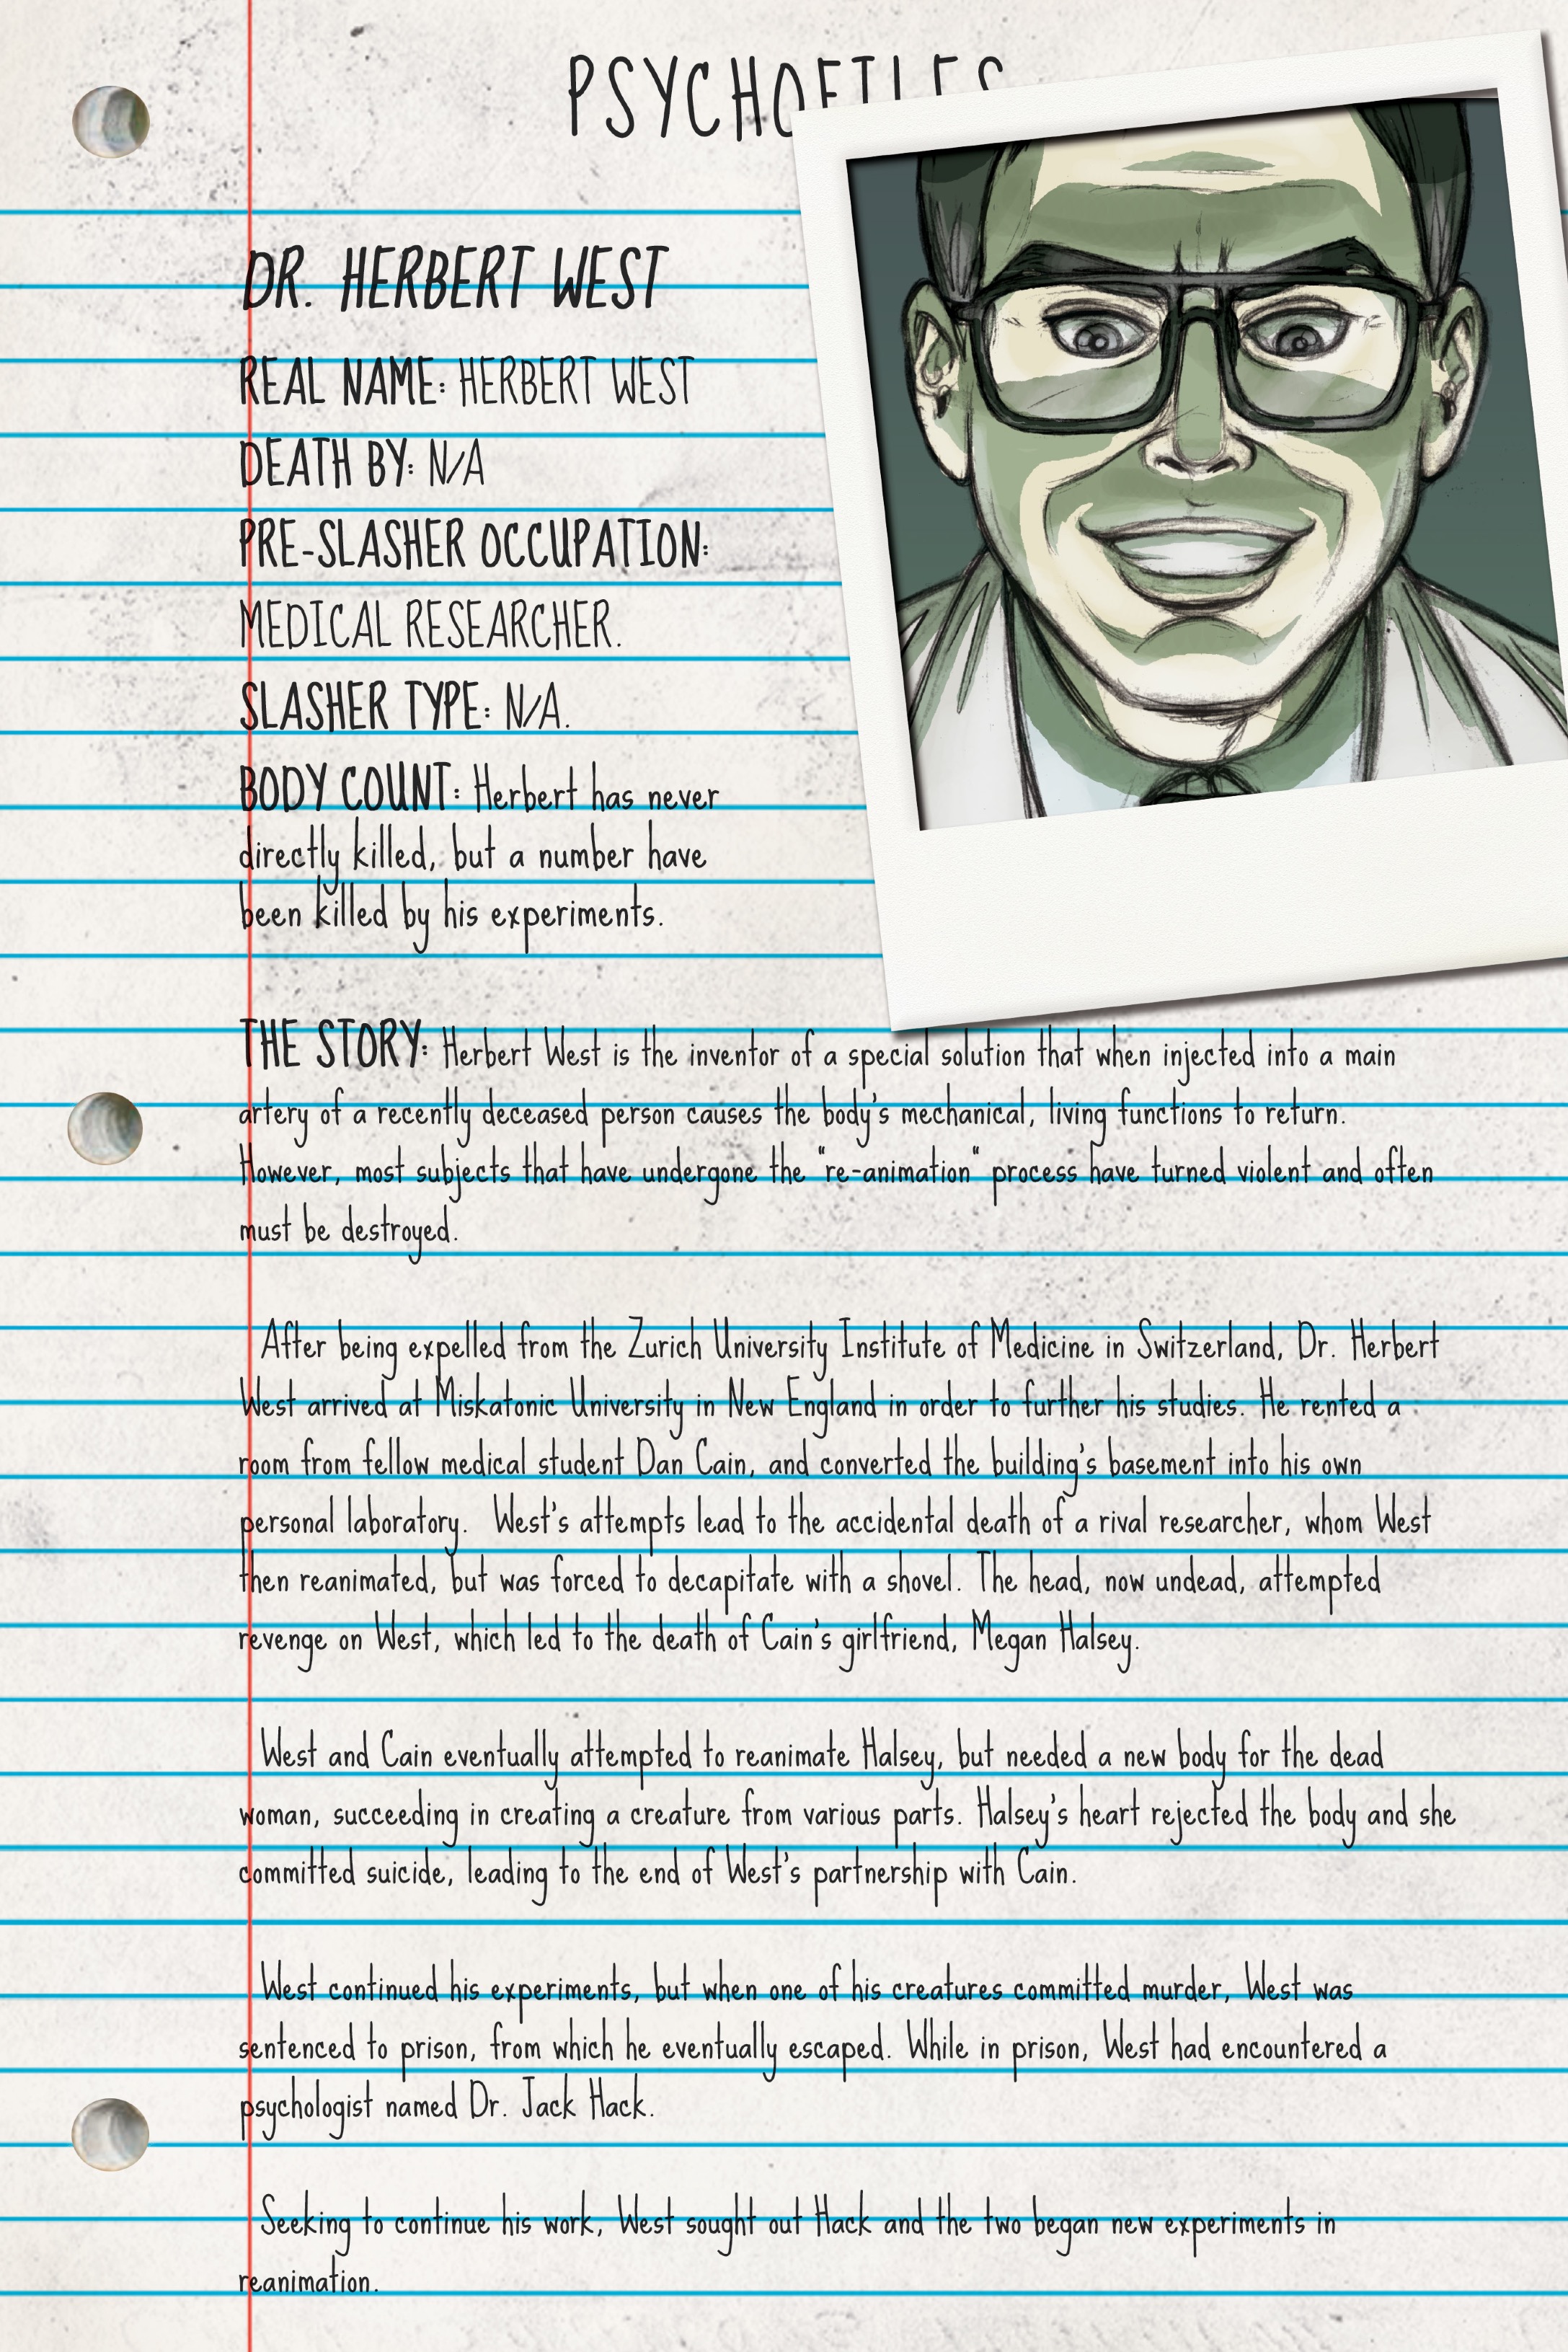 PSYCHOFILES
DR. HERBERT WEST
REAL NAME: HERBERT WEST
DEATH BY: N/A
PRE-SLASHER OCCUPATION:
MEDICAL RESEARCHER.
SLASHER TYPE: N/A.
BODY COUNT: Herbert has never
directly killed, but a number have
been killed by his experiments.
THE STORY: Herbert West is the inventor of a special solution that when injected into a main
artery of a recently deceased person causes the body's mechanical, living functions to return.
However, most subjects that have undergone the "re-animation" process have turned violent and often
must be destroyed.
After being expelled from the Zurich University Institute of Medicine in Switzerland, Dr. Herbert
West arrived at Miskatonic University in New England in order to further his studies. He rented a
room from fellow medical student Dan Cain, and converted the building's basement into his own
personal laboratory.  West's attempts lead to the accidental death of a rival researcher, whom West
then reanimated, but was forced to decapitate with a shovel. The head, now undead, attempted
revenge on West, which led to the death of Cain's girlfriend, Megan Halsey.
West and Cain eventually attempted to reanimate Halsey, but needed a new body for the dead
woman, succeeding in creating a creature from various parts. Halsey's heart rejected the body and she
committed suicide, leading to the end of West's partnership with Cain.
West continued his experiments, but when one of his creatures committed murder, West was
sentenced to prison, from which he eventually escaped. While in prison, West had encountered a
psychologist named Dr. Jack Hack.
Seeking to continue his work, West sought out Hack and the two began new experiments in
reanimation.